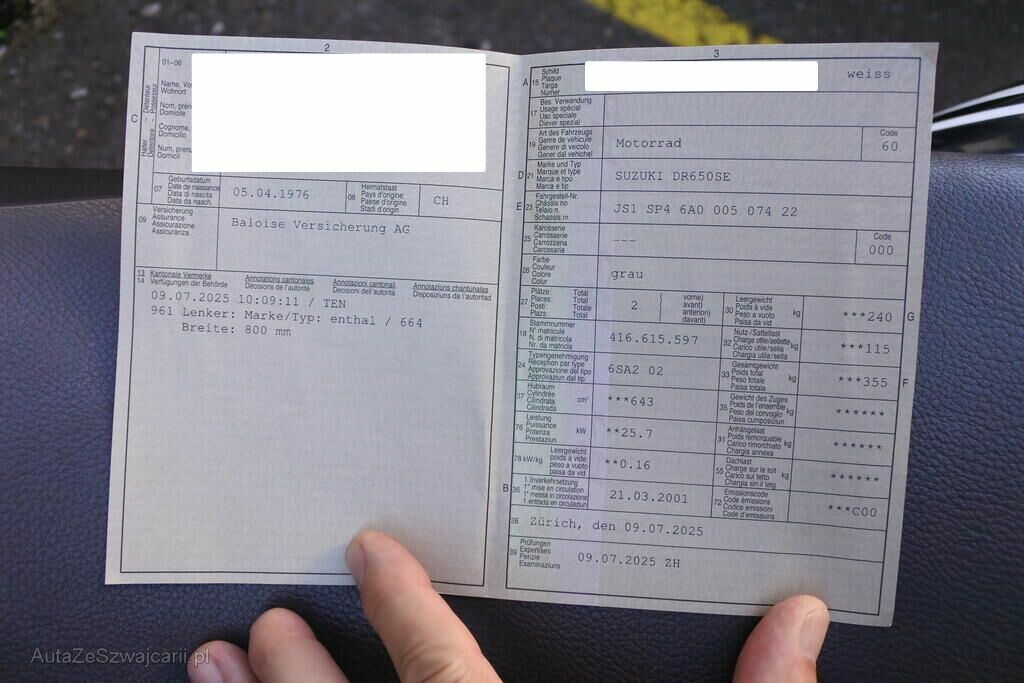 2
01-06
Name, Vo
Wohnort
Nom, prén
Domicile
Cognome,
Domicilio
Num, pren
Domicil
C
Halter – Détenteur
Detentore – Possessur
07
Geburtsdatum
Date de naissance
Data di nascita
Data da nasch.
05.04.1976
08
Heimatstaat
Pays d'origine
Paese d'origine
Stadi d'origin
CH
09
Versicherung
Assurance
Assicurazione
Assicuranza
Baloise Versicherung AG
13
14
Kantonale Vermerke
Verfügungen der Behörde
Annotations cantonales
Décisions de l'autorité
Annotazioni cantonali
Decisioni dell'autorità
Annotaziuns chantunalas
Disposiziuns da l'autoritad
09.07.2025 10:09:11 / TEN
961 Lenker: Marke/Typ: enthal / 664
Breite: 800 mm
3
A
15
Schild
Plaque
Targa
Numer
weiss
17
Bes. Verwendung
Usage spécial
Uso speciale
Diever spezial
19
Art des Fahrzeugs
Genre de véhicule
Genere di veicolo
Gener dal vehichel
Motorrad
Code
60
D
21
Marke und Typ
Marque et type
Marca e tipo
Marca e tip
SUZUKI DR650SE
E
23
Fahrgestell-Nr.
Châssis no
Telaio n.
Schassis nr.
JS1 SP4 6A0 005 074 22
25
Karosserie
Carrosserie
Carrozzeria
Carossaria
---
Code
000
26
Farbe
Couleur
Colore
Colur
grau
27
Plätze: Total
Places: Total
Posti: Totale
Plazs: Total
2
vorne)
avant)
anteriori)
davant)
30
Leergewicht
Poids à vide
Peso a vuoto
Paisa da vid
kg
***240
G
18
Stammnummer
N° matricule
N. di matricola
Nr. da matricla
416.615.597
32
Nutz-/Sattellast
Charge utile/sellette
Carico utile/sella
Chargia utila/sella
kg
***115
24
Typengenehmigung
Réception par type
Approvazione del tipo
Approvaziun dal tip
6SA2 02
33
Gesamtgewicht
Poids total
Peso totale
Paisa totala
kg
***355
F
37
Hubraum
Cylindrée
Cilindrata
Cilindrada
cm³
***643
35
Gewicht des Zuges
Poids de l'ensemble
Peso del convoglio
Paisa cumposiziun
kg
******
76
Leistung
Puissance
Potenza
Prestaziun
kW
**25.7
31
Anhängelast
Poids remorquable
Carico rimorchiato
Chargia annexa
kg
******
78 kW/kg
Leergewicht
poids à vide
peso a vuoto
paisa da vid
**0.16
55
Dachlast
Charge sur le toit
Carico sul tetto
Chargia sin il tetg
kg
******
B
36
1. Inverkehrsetzung
1re mise en circulation
1a messa in circolazione
1. entrada en circulaziun
21.03.2001
72
Emissionscode
Code émissions
Codice emissioni
Code d'emissiuns
***C00
38
Zürich, den 09.07.2025
39
Prüfungen
Expertises
Perizie
Examinaziuns
09.07.2025 ZH
AutaZeSzwajcarii.pl